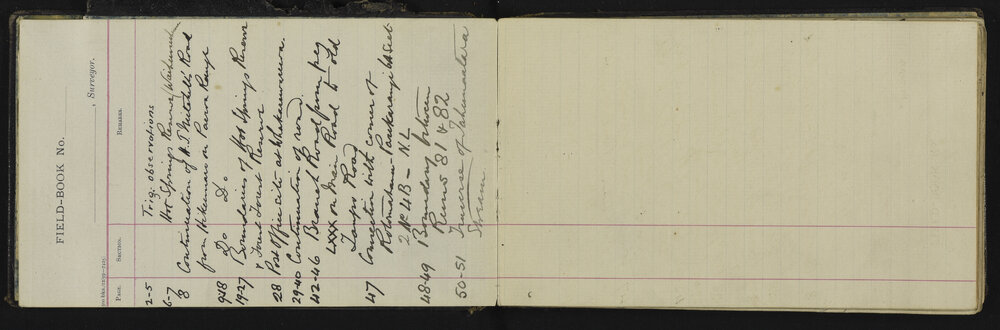 FIELD-BOOK No.
, Surveyor.
PAGE. SECTION. REMARKS.
2-5 Trig: observations
6-7 Hot Springs Reserve
8 Continuation of Mitchell's Road
from on Paeroa Range
9-18 Do Do
19-27 Boundaries of Hot Springs Reserve
& Forest Reserve
28 Post Office site at Whakarewarewa.
29-40 Continuation of road.
42-46 Branch Road from peg
LXXX on Main Road to old
Taupo Road
47 Connection with corner of
Rotomahana-Parekarangi
2 No 4B - N.L
48-49 Boundary between
Runs 81 & 82
50-51 Traverse of
Stream